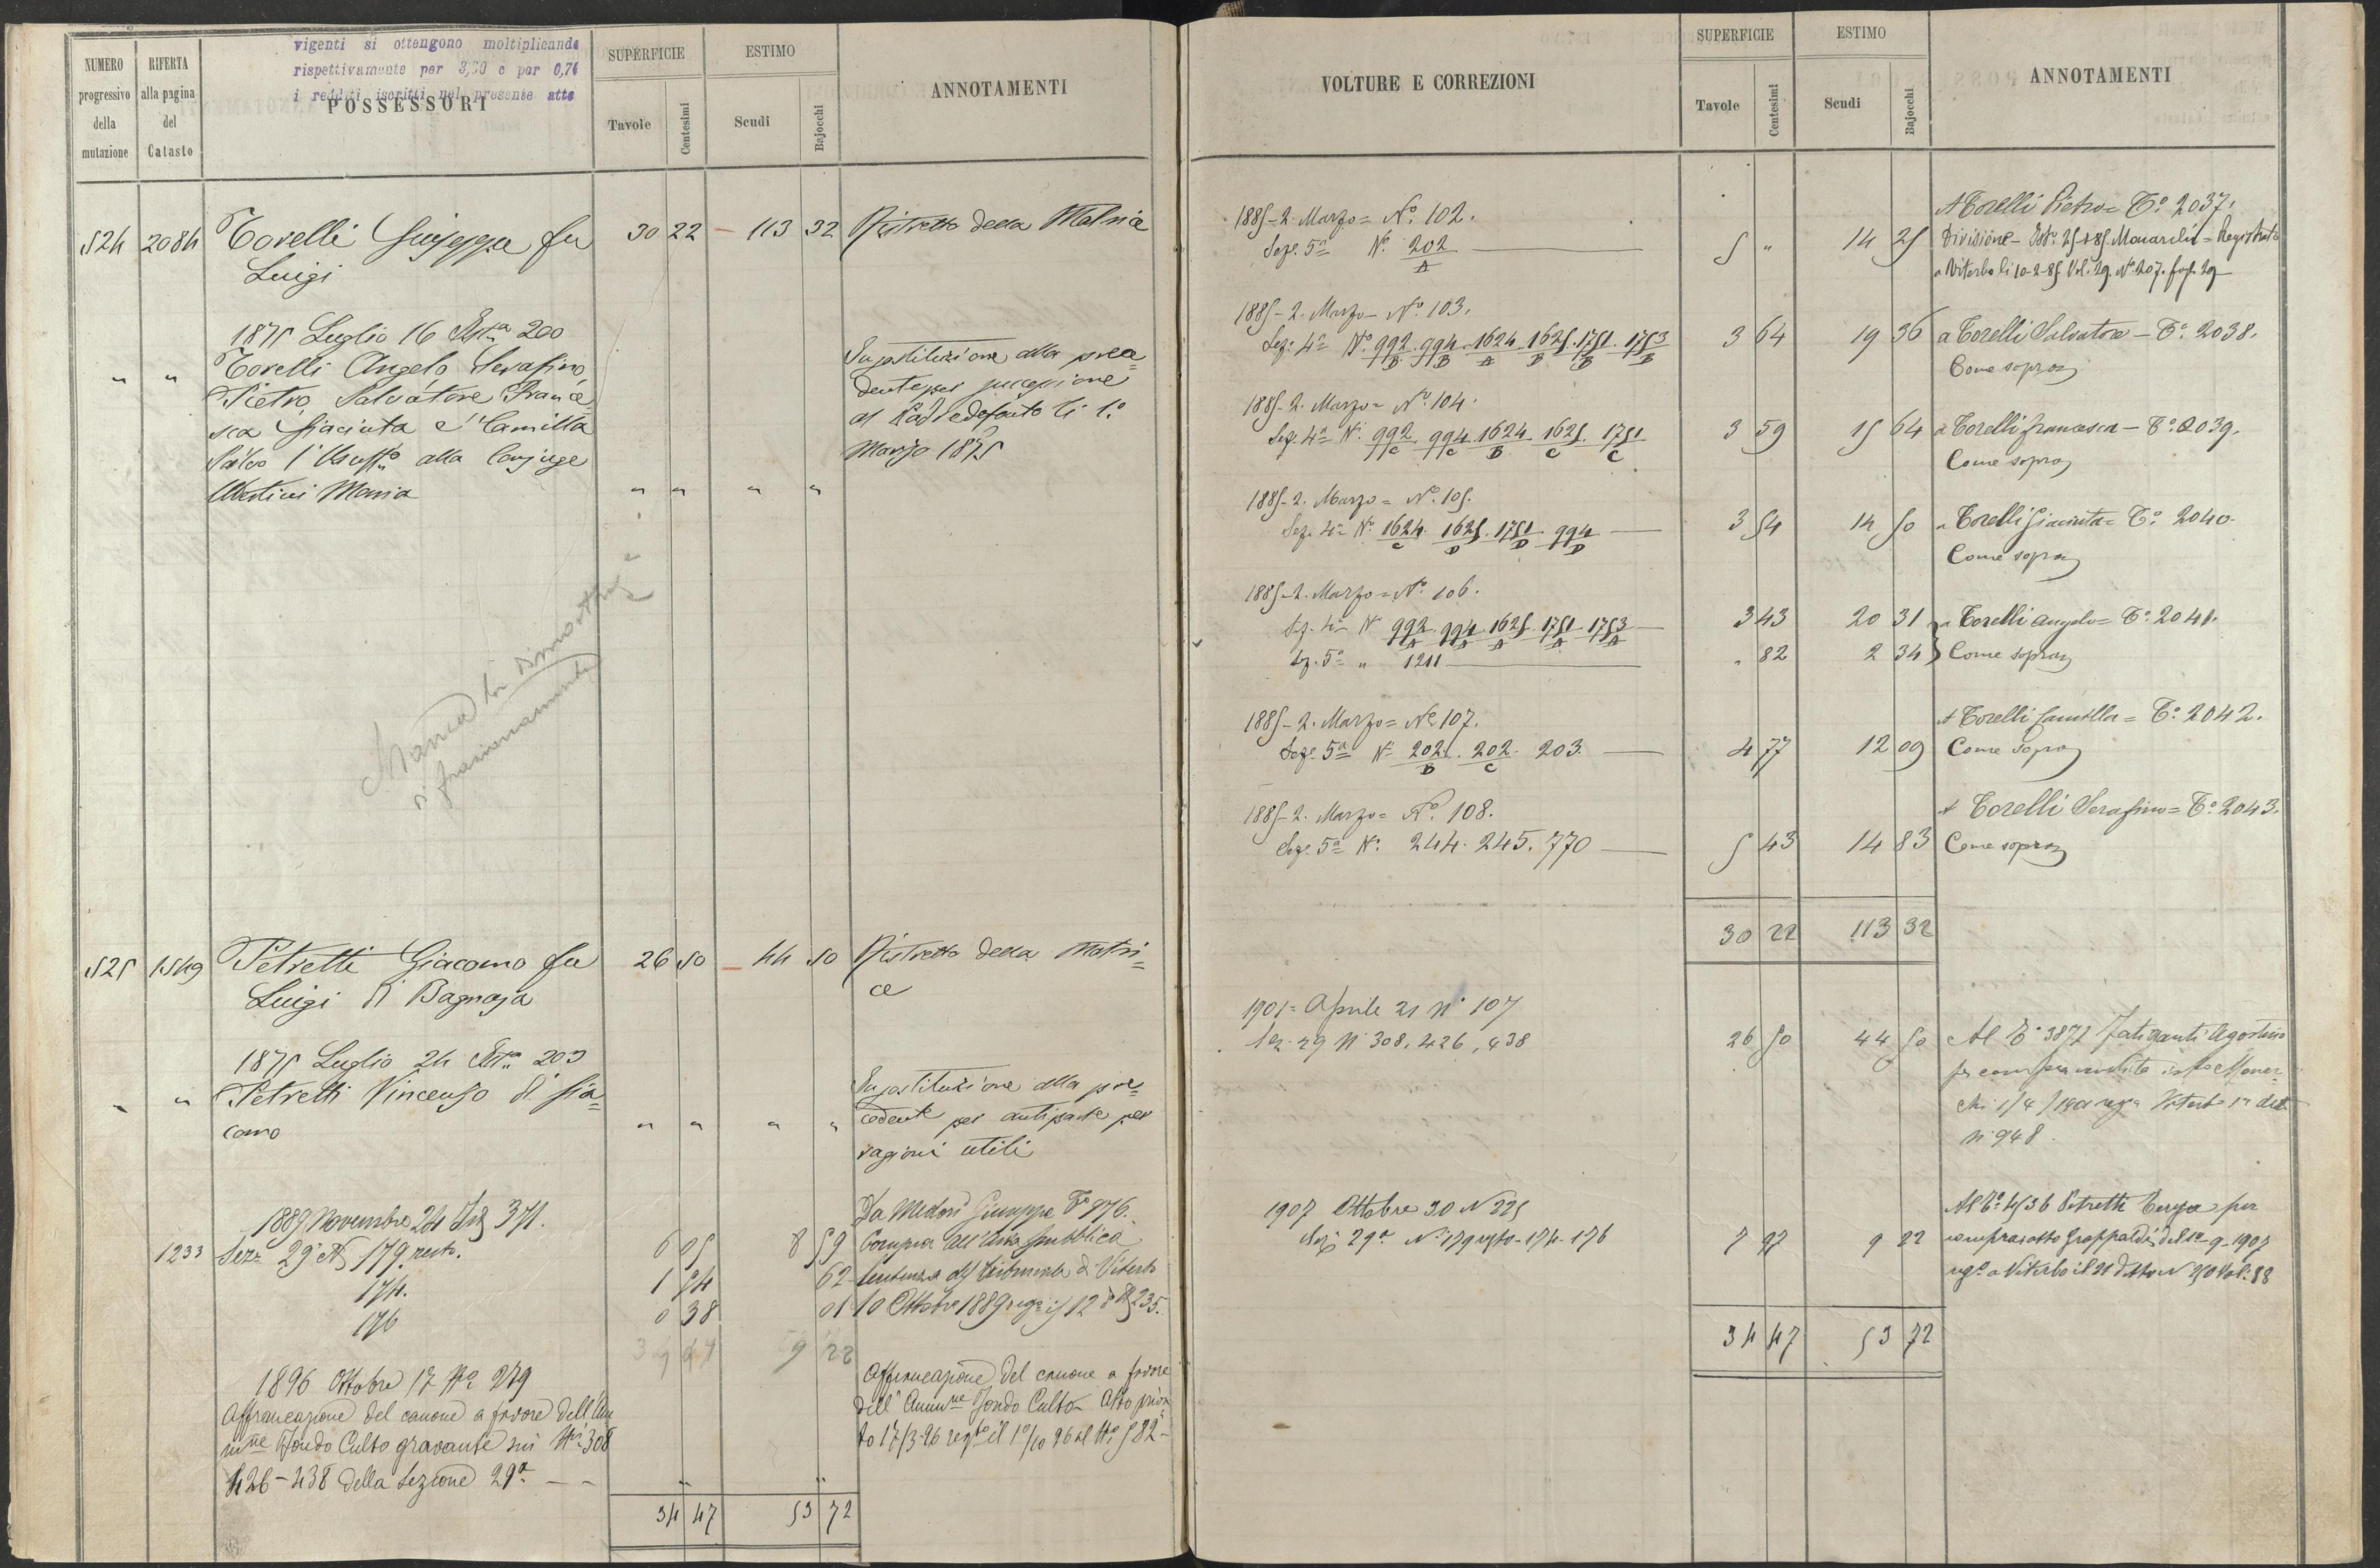 vigenti si ottengono moltiplicando
rispettivamente per 3,60 e per 0,76
i redditi iscritti nel presente atto
NUMERO progressivo della mutazione
RIFERTA alla pagina del Catasto
POSSESSORI
SUPERFICIE
Tavole Centesimi
ESTIMO
Scudi Bajocchi
ANNOTAMENTI
524 2084 Torelli Giuseppe fu 30 22 – 113 32 Ristretto della Matrice
Luigi
1875 Luglio 16 Ist.a 200
" " Torelli Angelo Serafino
Pietro Salvatore France=
sca Giacinta e Camilla
Salvo l'Usuff.o alla Conjuge
Maria " " " "
In sostituzione alla prece=
dente per successione
al Padre defonto li 1.o
Marzo 1875
Manca la dimostraz.e
di frazionamento
525 1549 Petretti Giacomo fu 26 50 – 44 50 Ristretto della Matri=
Luigi di Bagnaja
ce
1875 Luglio 24 Ist.a 203
" " Petretti Vincenzo di Gia=
como " " " "
In sostituzione alla pre=
cedente per antiparte per
ragioni utili
1889 Novembre 24 371.
1233 Sez.e 29.a N. 179. resto. 6 05 8 59
174. 1 54 62
176 0 38 01
9 22
Da Medori Giuseppe T.o 976.
Compra all'Asta pubblica
Sentenza del Tribunale di Viterbo
10 Ottobre 1889 reg.a il 12 d.o N. 235.
1896 Ottobre 17 N.o 279
Affrancazione del canone a favore dell'Am
m.ne Fondo Culto gravante sui N.i 308
426 – 438 della Sezione 29.a – – " "
Affrancazione del canone a favore
dell'Amm.ne Fondo Culto Atto priva
to 17/3-96 reg.to il 1.o/10 96 al N.o 582 –
34 47 53 72
VOLTURE E CORREZIONI
SUPERFICIE
Tavole Centesimi
ESTIMO
Scudi Bajocchi
ANNOTAMENTI
1885 - 2. Marzo = N.o 102.
Sez.e 5.a N.o 202/A 5 " 14 25
A Torelli Pietro = T.o 2037.
Divisione – Registrato
a Viterbo li 10-2-85 Vol. 29. N.o 207. fog. 29 –
1885 - 2. Marzo – N.o 103.
Sez.e 4.a N.o 992/B. 994/B. 1624/A. 1625/B. 1751/B. 1753/B 3 64 19 36 a Torelli Salvatore – T.o 2038.
Come sopra
1885 - 2. Marzo = N.o 104.
Sez.e 4.a N. 992/C 994/C 1624/B 1625/C 1751/C 3 59 15 64 a Torelli Francesca – T.o 2039.
Come sopra
1885 - 2. Marzo = N.o 105.
Sez.e 4.a N.o 1624/C 1625/D. 1751/D 994/D 3 54 14 50 a Torelli Giacinta = T.o 2040.
Come sopra
1885 - 2. Marzo = N.o 106.
Sez.e 4.a N.o 992/A. 994/A. 1625/A. 1751/A. 1753/A 3 43 20 31 a Torelli Angelo = T.o 2041.
Sez. 5.a " 1211 " 82 2 34 Come sopra
1885 - 2. Marzo = N.o 107.
Sez.e 5.a N.o 202/B. 202/C. 203. 4 77 12 09
A Torelli Camilla = T.o 2042.
Come sopra
1885 - 2. Marzo = N.o 108.
Sez.e 5.a N.o 244. 245. 770 5 43 14 83
A Torelli Serafino = T.o 2043.
Come sopra
30 22 113 32
1901 = Aprile 21 N.o 107
Sez. 29 N. 308, 426, 438 26 50 44 50
Al T.o 3872 Agostino
per compra vendita
1/4/1901 Viterbo
N. 948.
1907 Ottobre 30 N 325
Sez.e 29.a N.i 179 resto - 174 - 176 7 97 9 22
Al T.o 4536 Petretti Teresa per
compra atto Grappaldi del 12 - 9 - 1907
reg.o a Viterbo il 21 detto N 250 Vol. 88
34 47 53 72